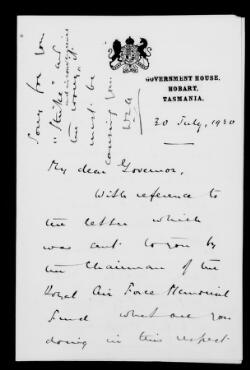 GOVERNMENT HOUSE,
HOBART,
TASMANIA.
30 July, 1930
Sorry for you
"Strike" and
and inconveniences
the worry it
must be
causing you
My dear Governor,
With reference to
the letter which
was sent to you by
the Chairman of the
Royal Air Force Memorial
Fund what are you
doing in this respect